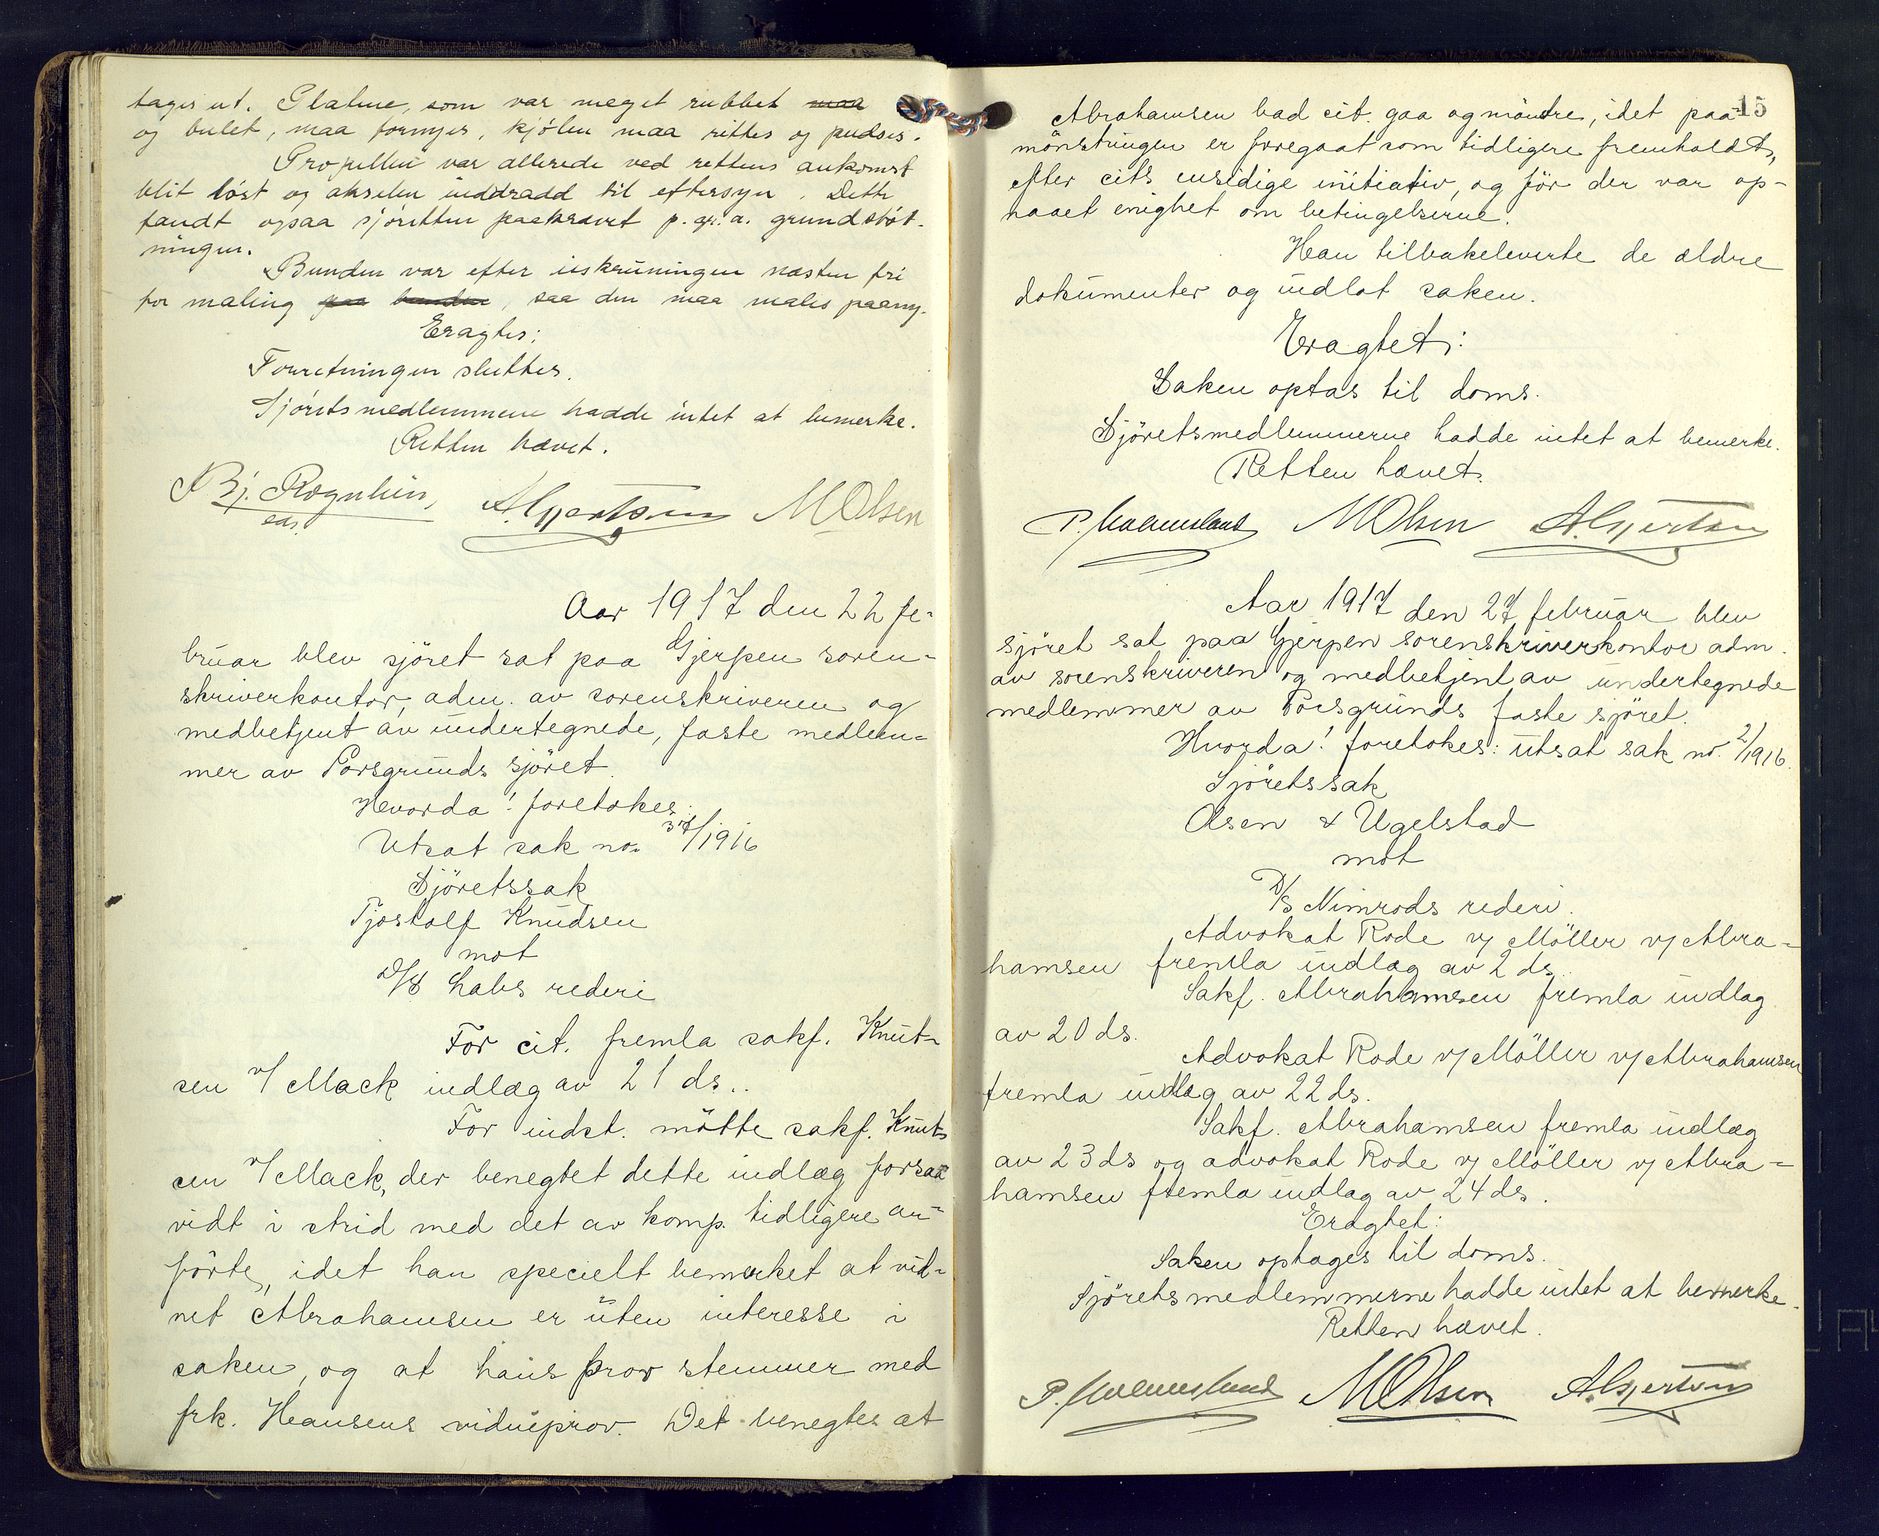 tages ut. Platene, som var meget rubbet maa
og bulet, maa fornyes, kjølen maa rettes og pudses.
Propellen var allerede ved rettens ankomst
blit løst og akselen inddradd til eftersyn. Dette
fandt ogsaa sjøretten paakrævet p. gr. a. grundstøt-
ningen.
Bunden var efter isskruningen næsten fri
for maling paa bunden, saa den maa males paany.
Eragtes:
Forretningen sluttes.
Sjøretsmedlemmene hadde intet at bemerke.
Retten hævet.
Bj. Rognlien, A. Gjertsen M Olsen
eds.
Aar 1917 den 22 fe-
bruar blev sjöret sat paa Gjerpen soren-
skriverkontor, adm. av sorenskriveren og
medbetjent av undertegnede, faste medlem-
mer av Porsgrunds sjöret.
Hvorda! foretokes:
Utsat sak no. 3/1916
Sjöretssak
Tjostolf Knudsen
mot
D/S Labs rederi
For cit. fremla sakf. Knut-
sen v/ Mack indlæg av 21 ds..
For indst. mötte sakf. Knut-
sen v/ Mack, der benegtet dette indlæg forsaa-
vidt i strid med det av komp. tidligere an-
förte, idet han specielt bemerket at vid-
net Abrahamsen er uten interesse i
saken, og at hans prov stemmer med
frk. Hansens vidneprov. Det benegtes at
15
Abrahamsen bad cit. gaa og mönstre, idet paa-
mönstringen er foregaat som tidligere fremholdt,
efter cits ensidige initiativ, og för der var op-
naaet enighet om betingelserne.
Han tilbakeleverte de ældre
dokumenter og indlot saken.
Eragtet:
Saken optas til doms.
Sjöretsmedlemmerne hadde intet at bemerke.
Retten hævet.
P. Holmesland M Olsen A. Gjertsen
Aar 1917 den 27 februar blev
sjöret sat paa Gjerpen sorenskriverkontor adm.
av sorenskriveren og medbetjent av undertegnede
medlemmer av Porsgrunds faste sjöret.
Hvorda! foretokes: utsat sak no. 2/1916.
Sjöretssak
Olsen & Ugelstad
mot
D/S Nimrods rederi.
Advokat Rode v/ Möller v/ Abra-
hamsen fremla indlæg av 2 ds.
Sakf. Abrahamsen fremla indlæg
av 20 ds.
Advokat Rode v/ Möller v/ Abrahamsen
fremla indlæg av 22 ds.
Sakf. Abrahamsen fremla indlæg
av 23 ds og advokat Rode v/ Möller v/ Abra-
hamsen fremla indlæg av 24 ds.
Eragtet:
Saken optages til doms.
Sjöretsmedlemmerne hadde intet at bemerke.
Retten hævet.
P. Holmesland M Olsen A. Gjertsen